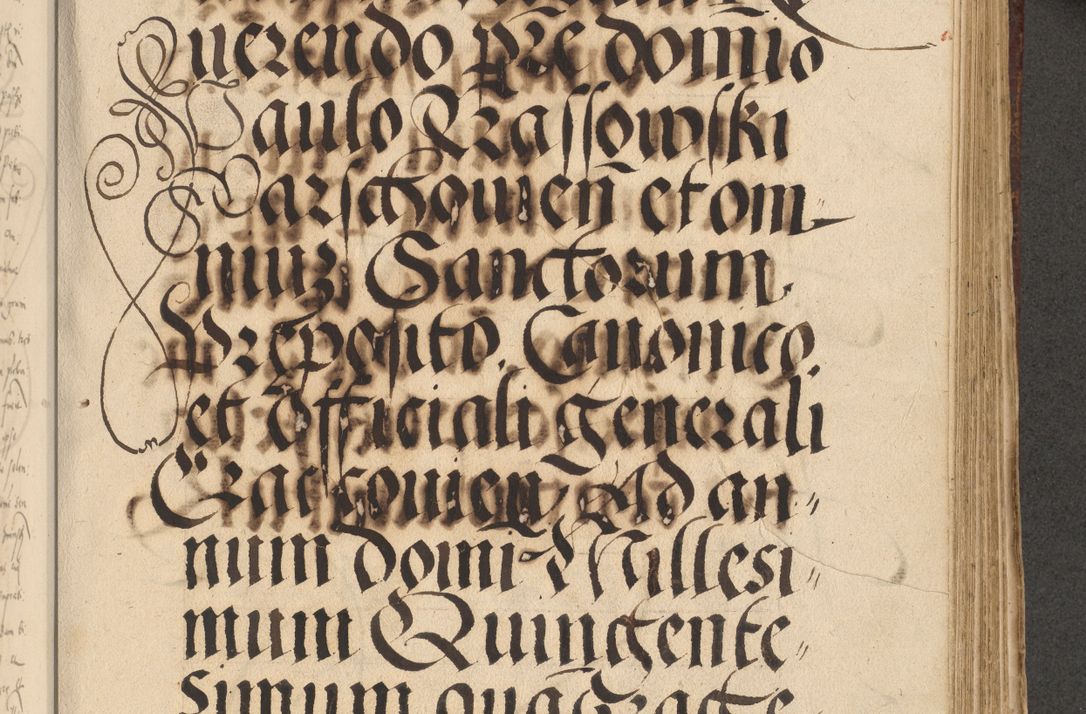 uerendo pr̃e domĩo
Paulo Krassowski
Varschouieñ et om
niuz Sanctorum
Preposito. Canonico
et Officiali Generali
Cracouieñ Ad an〃
num domi Millesi〃
mum Quingente〃
simum quadrage